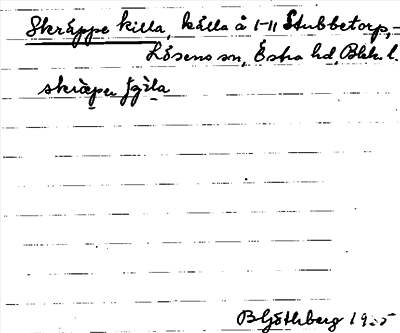 Skråppe killa, källa å 1-11 Stubbetorp,
Lösens sn, Östra hd, Blek. l.
skråpen
B Göthberg 19